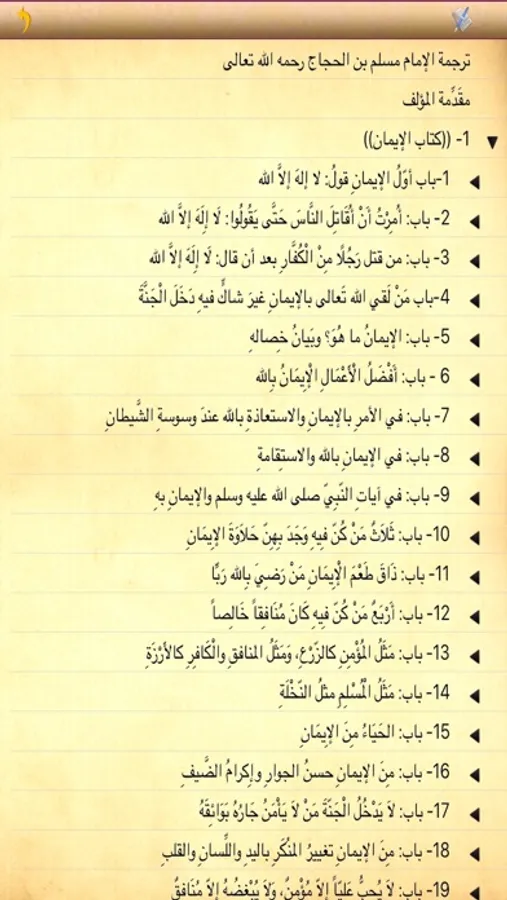 ترجمة الإمام مسلم بن الحجاج رحمه الله تعالى
مقَدِّمة المؤلف
1- ((كتاب الإيمان))
1-باب أوَّلُ الإيمانِ قولُ: لا إلهَ إلاَّ الله
2- باب: أُمِرْتُ أَنْ أُقَاتِلَ النَّاسَ حَتَّى يَقُولُوا: لَا إِلَهَ إلاَّ الله
3- باب: من قتل رَجُلًا مِنْ الْكُفَّارِ بعد أن قال: لَا إِلَهَ إلاَّ الله
4-باب مَنْ لَقي الله تَعالى بالإيمانِ غيرَ شاكٍّ فيهِ دَخَلَ الْجَنَّةَ
5- باب: الإيمانُ ما هُوَ؟ وبَيانُ خصاله
6 - باب: أَفْضَلُ الْأَعْمَالِ الْإِيمَانُ بِالله
7- باب: في الأمرِ بالإيمانِ والاستعاذةِ بالله عندَ وسوسةِ الشَّيطانِ
8- باب: في الإيمانِ بالله والاستقامةِ
9- باب: في آياتِ النَّبيِّ صلى الله عليه وسلم والإيمانِ بهِ
10- باب: ثَلَاثٌ مَنْ كُنَّ فيهِ وَجَدَ بهِنّ حَلَاوَةَ الإيمَانِ
11- باب: ذَاقَ طَعْمَ الْإِيمَانِ مَنْ رَضيَ بِالله رَبًّا
12- باب: أَرْبَعٌ مَنْ كُنّ فيه كَانَ مُنَافقاً خَالِصاً
13- باب: مَثَلُ المُؤْمِنِ كالزّرْعِ، وَمَثَلُ المنافقِ والْكَافرِ كالأرْزَةِ
14- باب: مَثَلُ الْمُسْلمِ مثلُ النّخْلَةِ
15- باب: الحَيَاءُ منَ الإيمَانِ
16- باب: مِنَ الإيمانِ حسنُ الجوارِ وإكرامُ الضَّيفِ
17- باب: لَا يَدْخُلُ الْجَنّةَ مَنْ لَا يَأْمَنُ جَارُهُ بَوَائقَهُ
18- باب: مِنَ الإيمانِ تغييرُ المنْكَرِ باليدِ واللِّسانِ والقلبِ
19- باب: لَا يُحبُّ عَليّاً إلّا مؤْمنٌ، وَلَا يُبْغضُهُ إلّا مُنَافقٌ